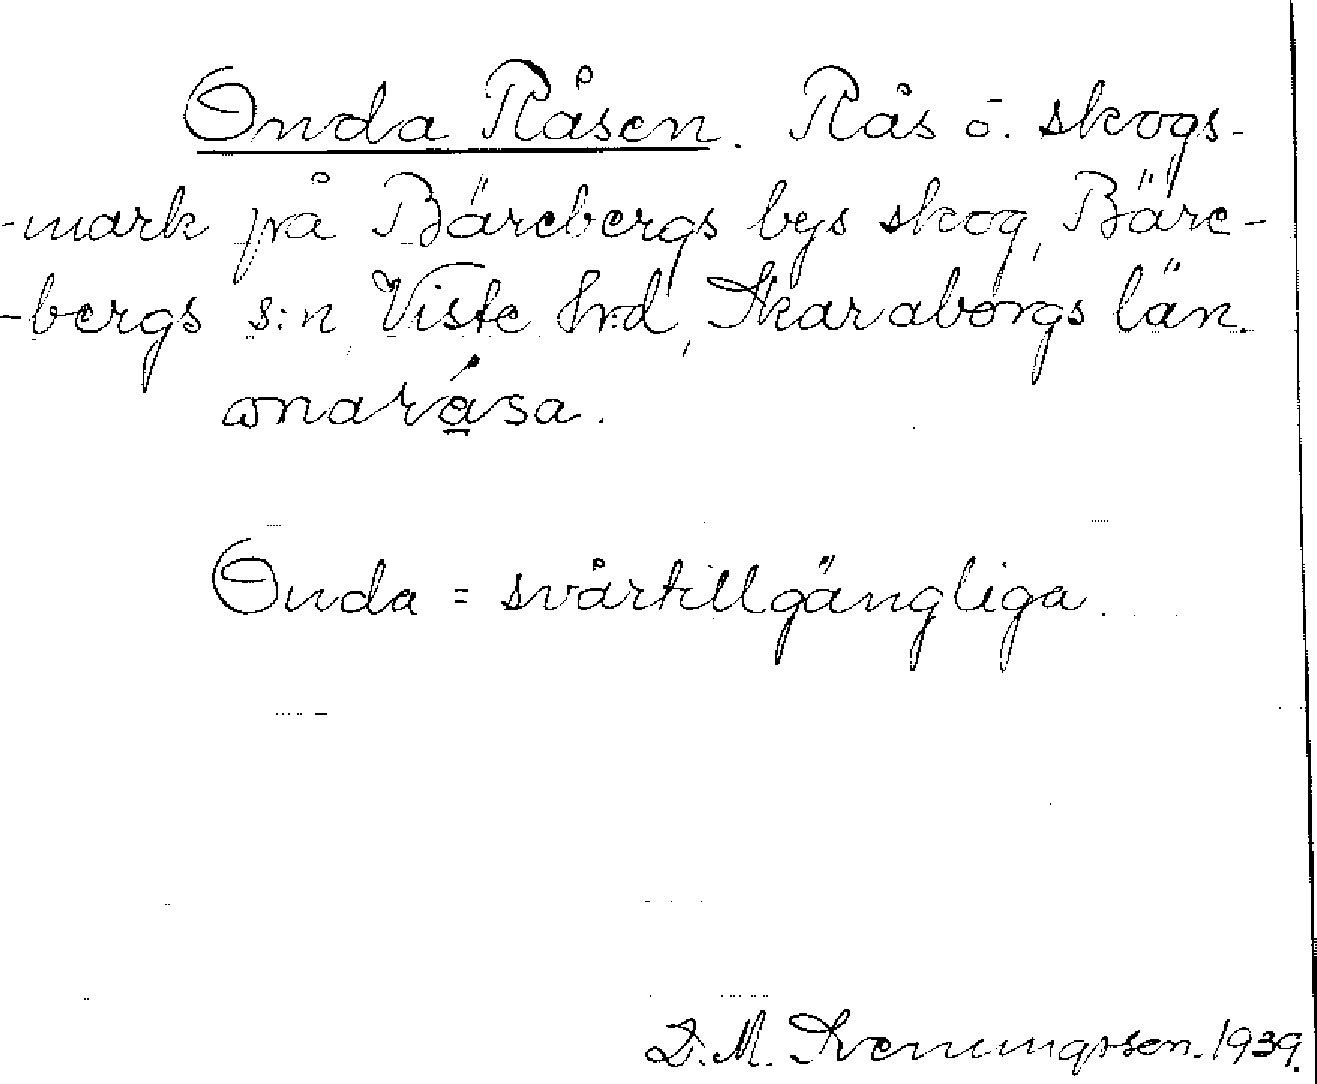 Onda Råsen. Rås o. skogs-
-mark på Bärebergs bys skog, Bäre-
-bergs s:n, Viste hrd, Skaraborgs län.
ωnarása.
Onda = svårtillgängliga.
D. M. Svenungsson. 1939.